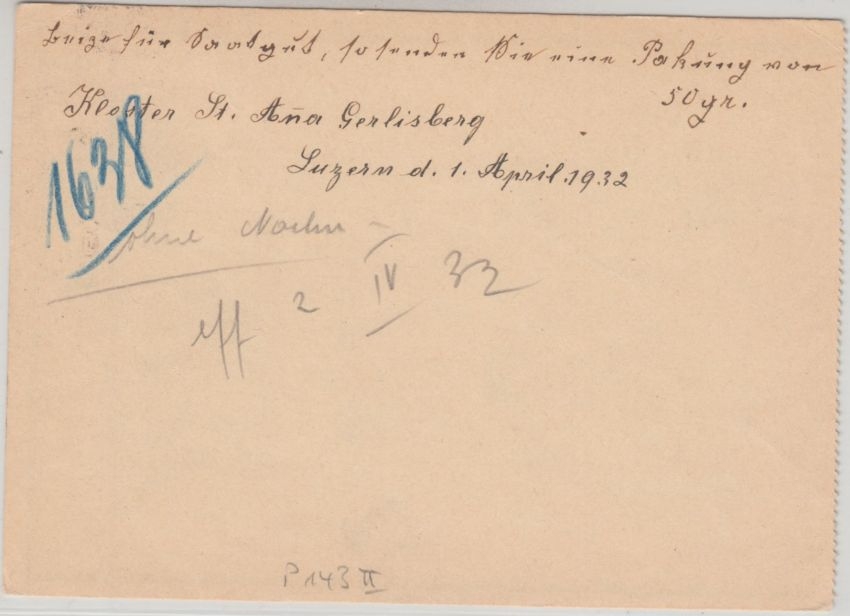 beize für Saatgut, so senden Sie eine Pakung von
50 gr.
Kloster St. Aña Gerlisberg
Luzern d. 1. April. 1932
1638
ohne Nachn -
eff 2 IV 32
P 143 II